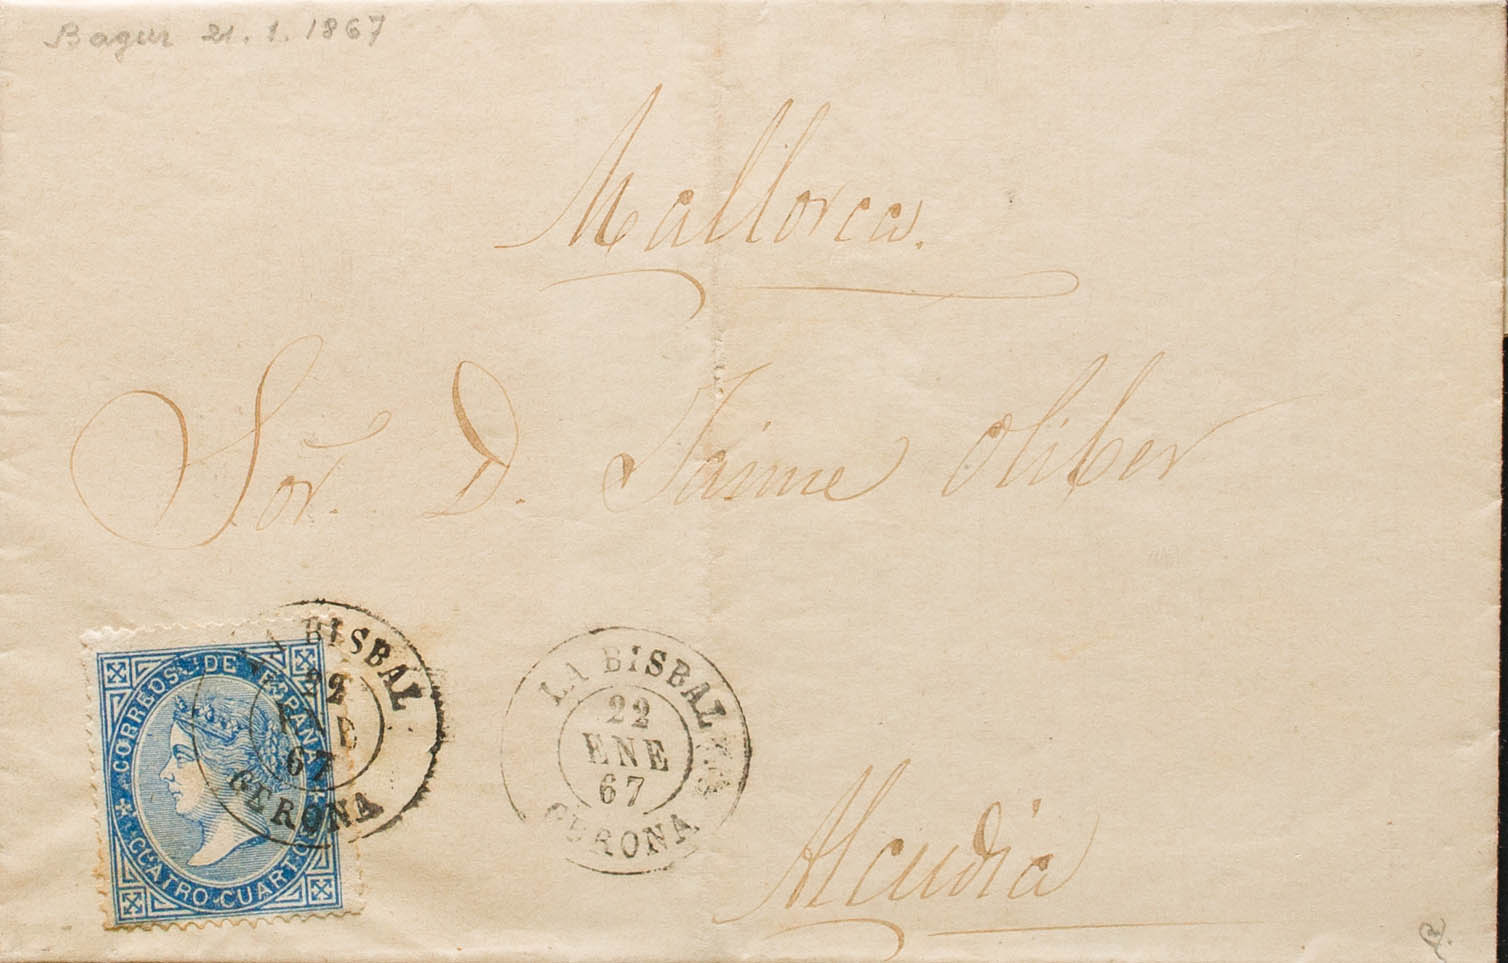 Bagur 21.1.1867
Mallorca.
Sor. D. Jaime Oliber
LA BISBAL
22
ENE
67
GERONA
CORREOS DE ESPAÑA
CUATRO CUARTOS
LA BISBAL
22
ENE
67
GERONA
Alcudia